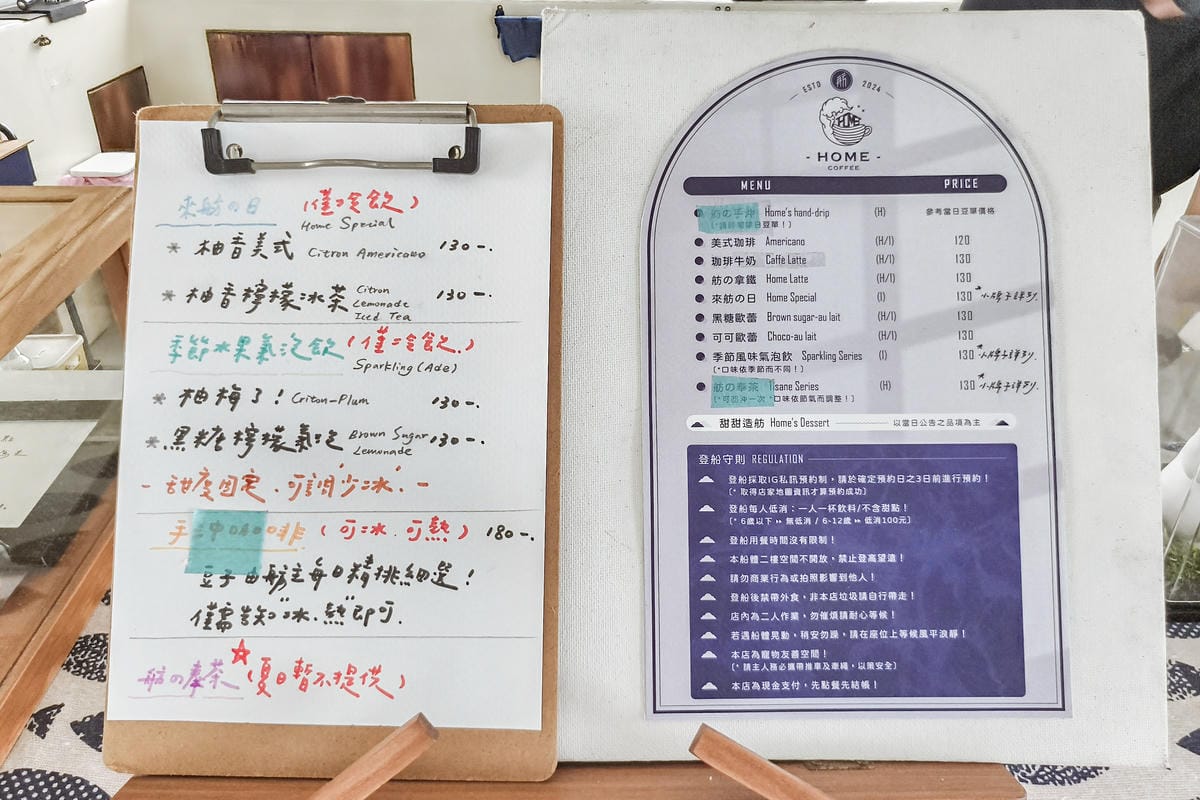 來舫の日 (僅冷飲)
Home Special
* 柚香美式 Citron Americano 130-.
* 柚香檸檬冰茶 Citron Lemonade Iced Tea 130-.
季節水果氣泡飲 (僅冷飲.)
Sparkling (Ade)
* 柚梅了! Criton-Plum 130-.
* 黑糖檸檬氣泡 Brown Sugar Lemonade 130-.
- 甜度固定.可調'少冰'. -
手沖咖啡 (可冰.可熱) 180-.
豆子由舫主每日精挑細選!
僅需告知"冰.熱"即可.
舫の奉茶 (夏日暫不提供)
ESTD 舫 2024
HOME
- HOME -
COFFEE
MENU PRICE
舫の手沖 Home's hand-drip (H) 參考當日豆單價格
日豆單!)
美式珈琲 Americano (H/I) 120
珈琲牛奶 Caffe Latte (H/I) 130
舫の拿鐵 Home Latte (H/I) 130
來舫の日 Home Special (I) 130 *小牌子詳列.
黑糖歐蕾 Brown sugar-au lait (H/I) 130
可可歐蕾 Choco-au lait (H/I) 130
季節風味氣泡飲 Sparkling Series (I) 130 *小牌子詳列.
(*口味依季節而不同!)
舫の奉茶 Tisane Series (H) 130 *小牌子詳列.
(*可回沖一次 *口味依節氣而調整!)
甜甜造舫 Home's Dessert 以當日公告之品項為主
登船守則 REGULATION
登船採取IG私訊預約制,請於確定預約日之3日前進行預約!
(* 取得店家地圖資訊才算預約成功)
登船每人低消:一人一杯飲料/不含甜點!
(* 6歲以下 ▸▸ 無低消 / 6-12歲 ▸▸ 低消100元)
登船用餐時間沒有限制!
本船體二樓空間不開放,禁止登高望遠!
請勿商業行為或拍照影響到他人!
登船後禁帶外食,非本店垃圾請自行帶走!
店內為二人作業,勿催煩請耐心等候!
若遇船體晃動,稍安勿躁,請在座位上等候風平浪靜!
本店為寵物友善空間!
(* 請主人務必攜帶推車及牽繩,以策安全)
本店為現金支付,先點餐先結帳!